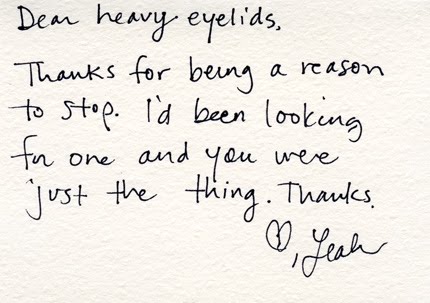 Dear heavy eyelids,
Thanks for being a reason
to stop. I'd been looking
for one and you were
just the thing. Thanks.
♡, Leah